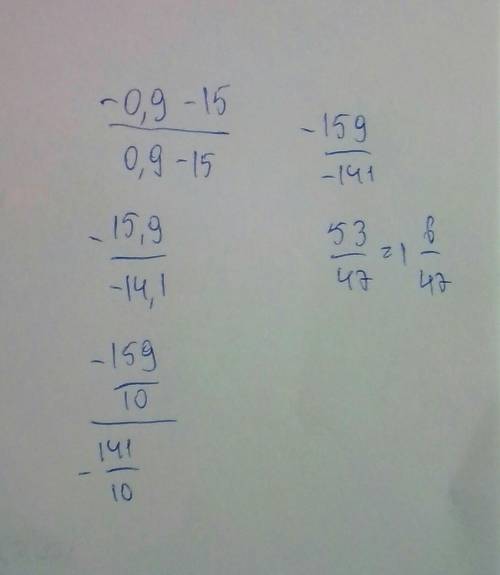 -0,9 -15
0,9 -15
-15,9
-14,1
-159
10
-141
10
-159
-141
53
47
=1
6
47